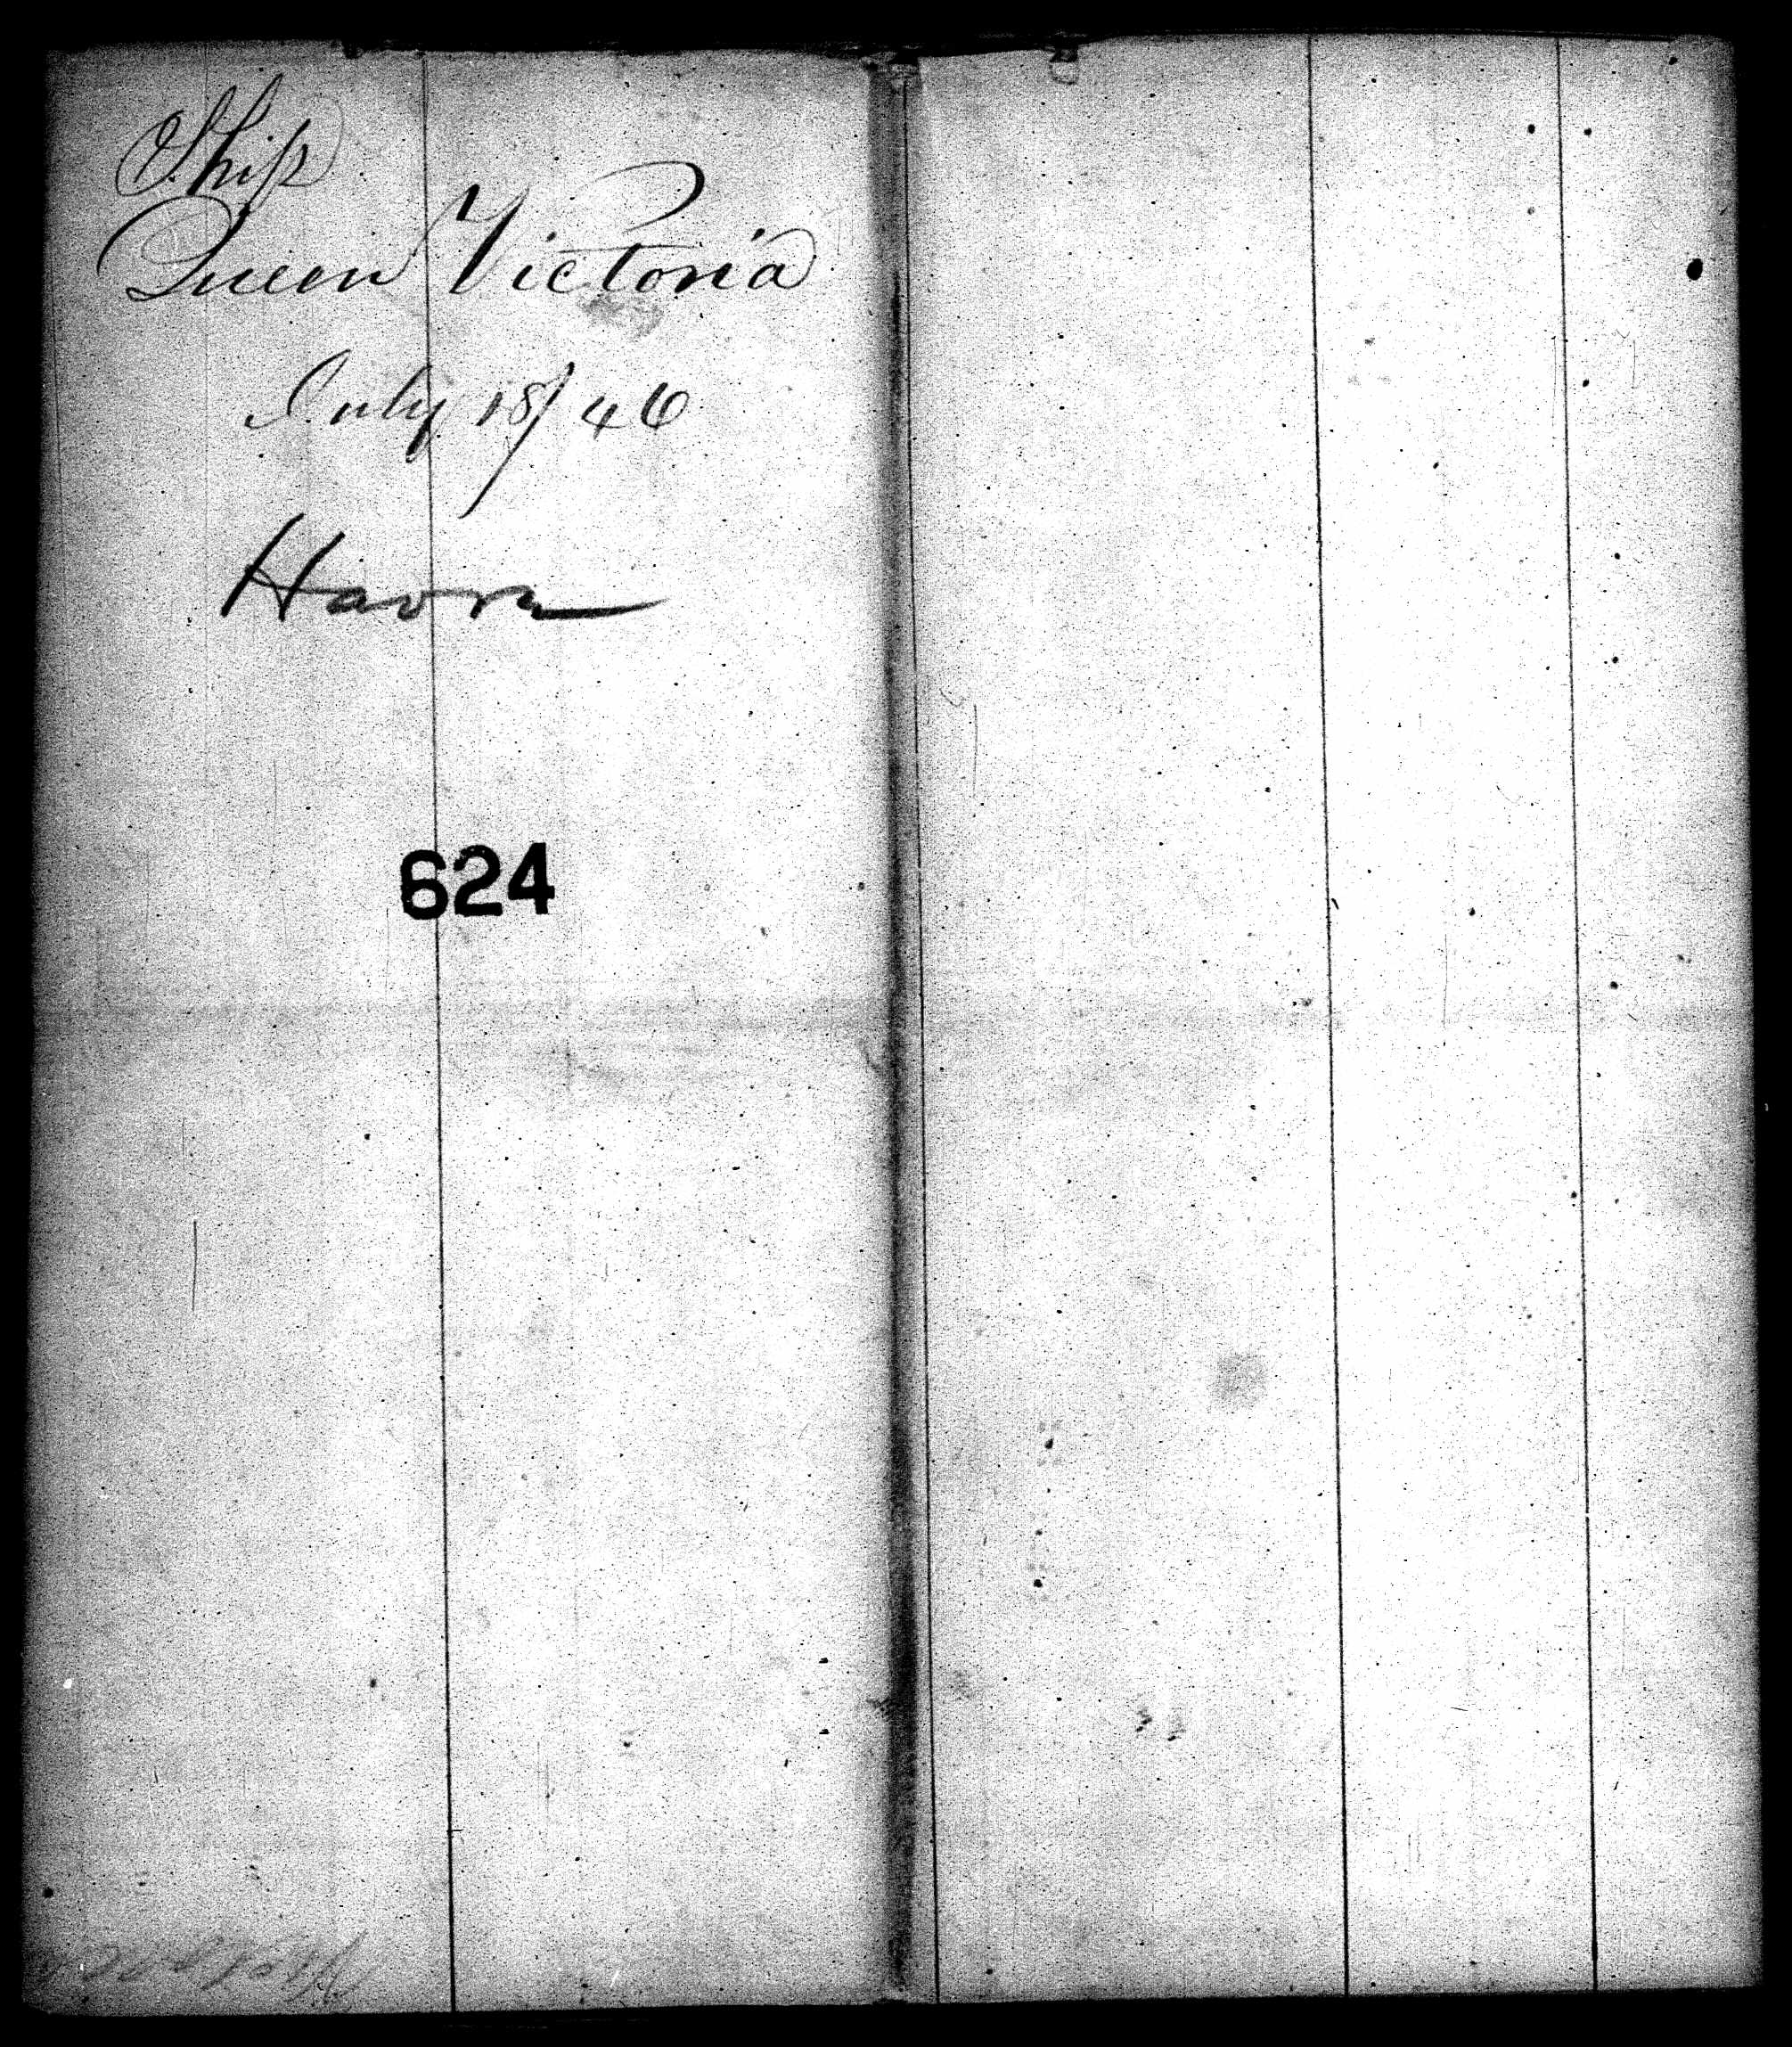 Ship
Queen Victoria
July 18/46
Havre
624